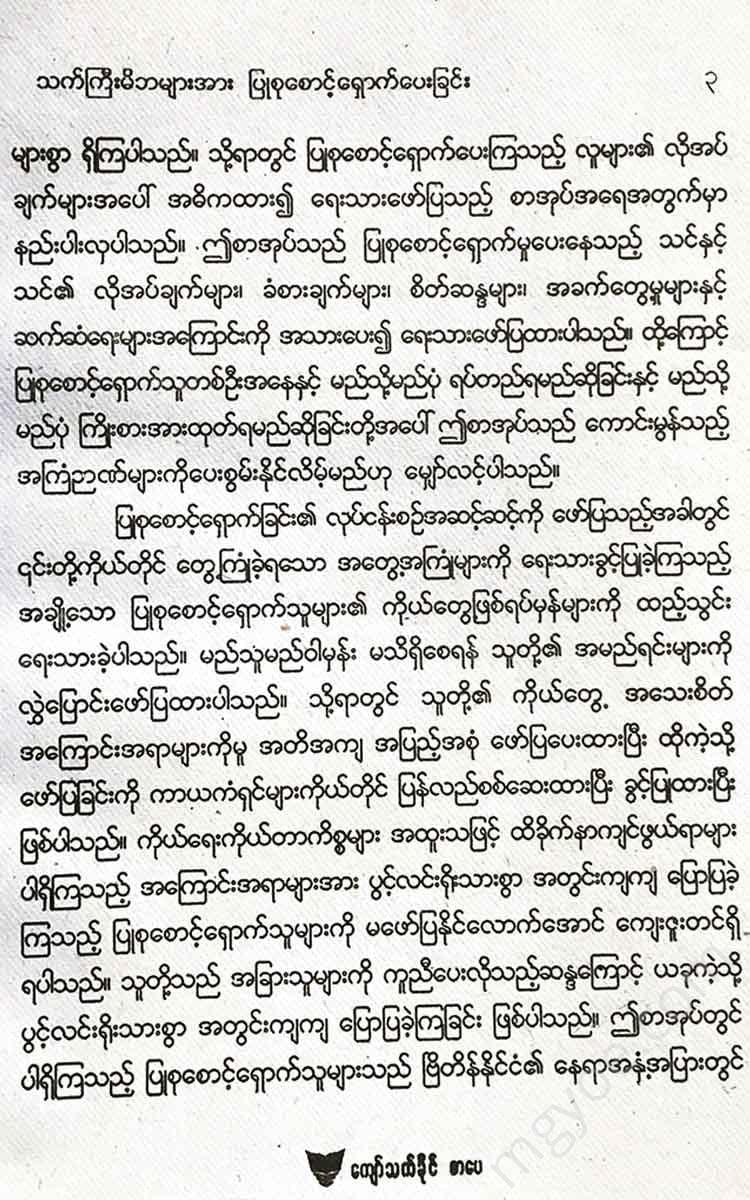 သက်ကြီးမိဘများအား ပြုစုစောင့်ရှောက်ပေးခြင်း ၃
များစွာ ရှိကြပါသည်။ သို့ရာတွင် ပြုစုစောင့်ရှောက်ပေးကြသည့် လူများ၏ လိုအပ်
ချက်များအပေါ် အဓိကထား၍ ရေးသားဖော်ပြသည့် စာအုပ်အရေအတွက်မှာ
နည်းပါးလှပါသည်။ ဤစာအုပ်သည် ပြုစုစောင့်ရှောက်မှုပေးနေသည့် သင်နှင့်
သင်၏ လိုအပ်ချက်များ၊ ခံစားချက်များ၊ စိတ်ဆန္ဒများ၊ အခက်တွေ့မှုများနှင့်
ဆက်ဆံရေးများအကြောင်းကို အသားပေး၍ ရေးသားဖော်ပြထားပါသည်။ ထို့ကြောင့်
ပြုစုစောင့်ရှောက်သူတစ်ဦးအနေနှင့် မည်သို့မည်ပုံ ရပ်တည်ရမည်ဆိုခြင်းနှင့် မည်သို့
မည်ပုံ ကြိုးစားအားထုတ်ရမည်ဆိုခြင်းတို့အပေါ် ဤစာအုပ်သည် ကောင်းမွန်သည့်
အကြံဉာဏ်များကိုပေးစွမ်းနိုင်လိမ့်မည်ဟု မျှော်လင့်ပါသည်။
ပြုစုစောင့်ရှောက်ခြင်း၏ လုပ်ငန်းစဉ်အဆင့်ဆင့်ကို ဖော်ပြသည့်အခါတွင်
၎င်းတို့ကိုယ်တိုင် တွေ့ကြုံခဲ့ရသော အတွေ့အကြုံများကို ရေးသားခွင့်ပြုခဲ့ကြသည့်
အချို့သော ပြုစုစောင့်ရှောက်သူများ၏ ကိုယ်တွေ့ဖြစ်ရပ်မှန်များကို ထည့်သွင်း
ရေးသားခဲ့ပါသည်။ မည်သူမည်ဝါမှန်း မသိရှိစေရန် သူတို့၏ အမည်ရင်းများကို
လွှဲပြောင်းဖော်ပြထားပါသည်။ သို့ရာတွင် သူတို့၏ ကိုယ်တွေ့ အသေးစိတ်
အကြောင်းအရာများကိုမူ အတိအကျ အပြည့်အစုံ ဖော်ပြပေးထားပြီး ထိုကဲ့သို့
ဖော်ပြခြင်းကို ကာယကံရှင်များကိုယ်တိုင် ပြန်လည်စစ်ဆေးထားပြီး ခွင့်ပြုထားပြီး
ဖြစ်ပါသည်။ ကိုယ်ရေးကိုယ်တာကိစ္စများ အထူးသဖြင့် ထိခိုက်နာကျင်ဖွယ်ရာများ
ပါရှိကြသည့် အကြောင်းအရာများအား ပွင့်လင်းရိုးသားစွာ အတွင်းကျကျ ပြောပြခဲ့
ကြသည့် ပြုစုစောင့်ရှောက်သူများကို မဖော်ပြနိုင်လောက်အောင် ကျေးဇူးတင်ရှိ
ရပါသည်။ သူတို့သည် အခြားသူများကို ကူညီပေးလိုသည့်ဆန္ဒကြောင့် ယခုကဲ့သို့
ပွင့်လင်းရိုးသားစွာ အတွင်းကျကျ ပြောပြခဲ့ကြခြင်း ဖြစ်ပါသည်။ ဤစာအုပ်တွင်
ပါရှိကြသည့် ပြုစုစောင့်ရှောက်သူများသည် ဗြိတိန်နိုင်ငံ၏ နေရာအနှံ့အပြားတွင်
ကျော်သက်ခိုင် စာပေ